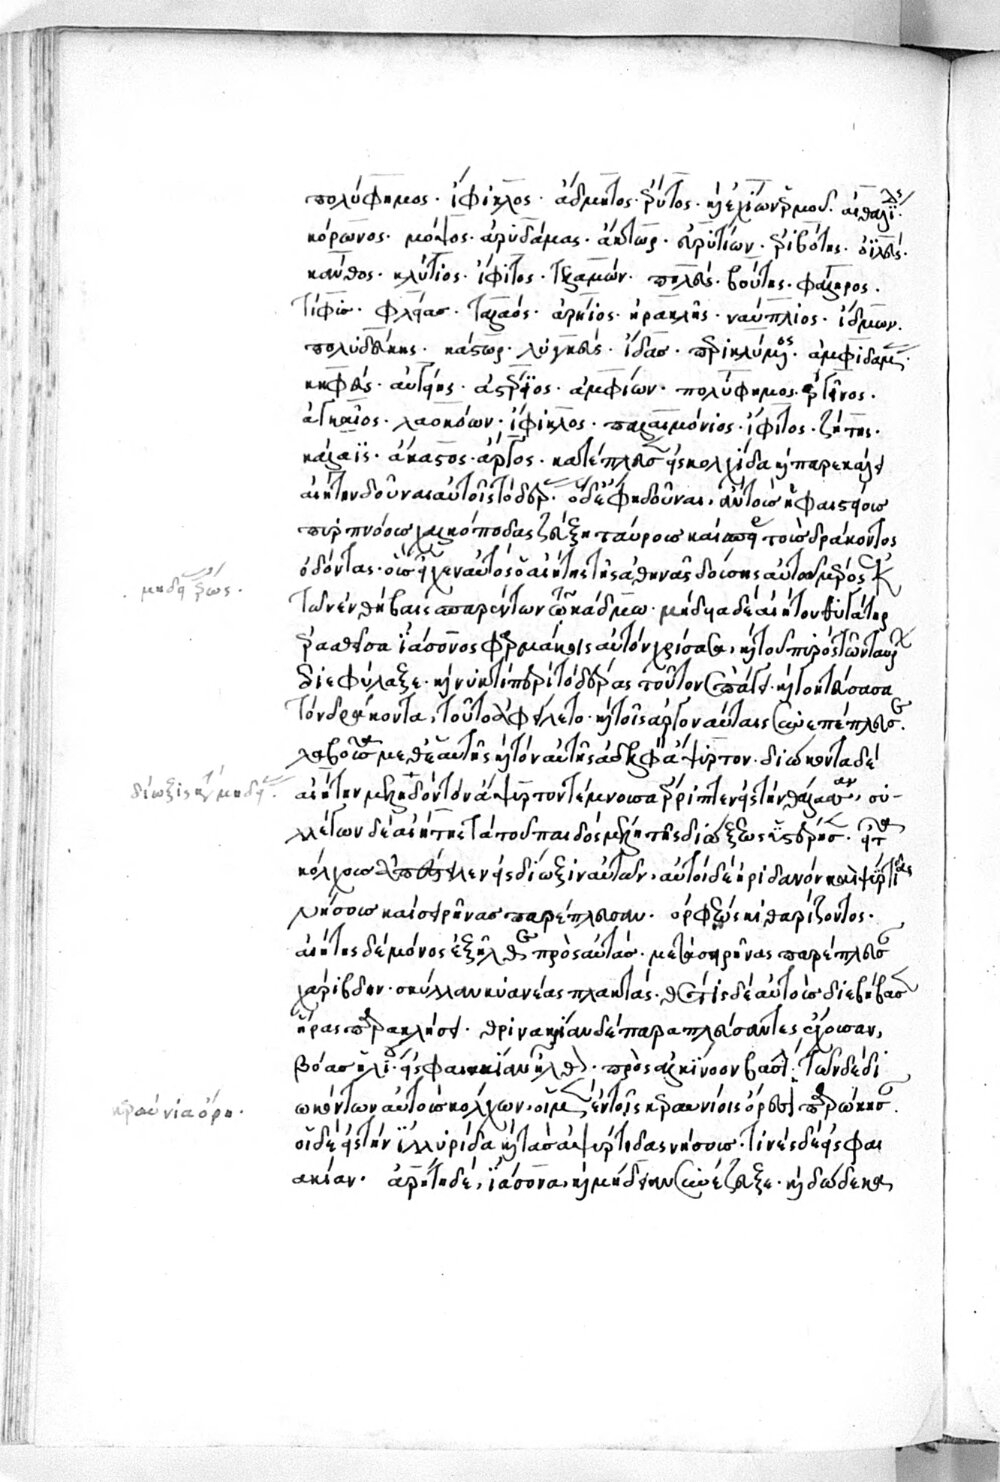 πολύφημος· ἴφικλος· ἄδμητος· ἔρυτος· καὶ ἐχίων ἑρμοῦ· αἰθαλί̈δης·
κόρωνος· μόψος· εὐρυδάμας· ἄκτωρ· εὐρυτίων· ἐριβώτης· ὀϊλεύς·
κάνθος· κλύτιος· ἴφιτος· τελαμών· πηλεύς· βούτης· φάληρος·
τίφυς· φλίας· ταλαός· ἀρήϊος· ἡρακλῆς· ναύπλιος· ἴδμων·
πολυδεύκης· κάστωρ· λυγκεύς· ἴδας· περικλύμενος· ἀμφιδάμας·
κηφεύς· αὐγείης· ἀστέριος· ἀμφίων· πολύφημος· ἐργῖνος·
ἀγκαῖος· λαοκόων· ἴφικλος· παλαιμόνιος· ἴφιτος· ζήτης·
κάλαϊς· ἄκαστος· ἄργος· κατέπλευσεν εἰς κολχίδα καὶ παρεκάλει
αἰήτην δοῦναι αὐτοῖς τὸ δέρας· ὁ δὲ ἔφη δοῦναι, αὐτοῖς ἡφαιστείοις
πυρπνόοις χαλκόποδας ζεύξῃ ταύροις καὶ σπείρῃ τοὺς δράκοντος
ὀδόντας· οὓς εἶχεν αὐτὸς ὁ αἰήτης τῆς ἀθηνᾶς δούσης αὐτῷ μέρος ἐκ
τῶν ἐν θήβαις σπαρέντων τῷ κάδμῳ· μήδεια δὲ αἰήτου θυγάτηρ
ἐρασθεῖσα ἰάσονος φαρμάκοις αὐτὸν χρίσασα, καὶ τοῦ πυρὸς τῶν ταύρων
διεφύλαξε· καὶ νυκτὶ περὶ τὸ δέρας τοῦτον σπεύσει· καὶ τὸ κτείσασα
τὸν δράκοντα, τοῦτο ἀφείλετο· καὶ τοῖς ἀργοναύταις συνέπλευσεν·
λαβοῦσα μεθ' ἑαυτῆς καὶ τὸν αὐτῆς ἀδελφὸν ἄψυρτον· διώκοντα δὲ
αἰήτην μεληδὸν τὸν ἄψυρτον τέμνουσα ἔρριπτεν εἰς τὴν θάλασσαν, συ-
λλέγων δὲ αἰήτης τὰ τοῦ παιδὸς μέλη τῆς διώξεως ὑστέρησεν· εἶτα
κόλχους ἀπέστειλεν εἰς δίωξιν αὐτῶν, αὐτοὶ δὲ ἠριδανὸν καὶ ἀψυρτίδας
νήσους καὶ σειρῆνας παρέπλευσαν· ὀρφέως κιθαρίζοντος·
αἰήτης δὲ μόνος ἐξῆλθε πρὸς αὐτάς· μετὰ σειρῆνας παρέπλευσεν
χάρυβδιν· σκύλλαν κυανέας πλαγκτάς· θέτις δὲ αὐτοὺς διεβίβασεν
ἥρας παρακλήσει· θρινακίαν δὲ παραπλεύσαντες εἶχουσαν,
βόας ἡλίου εἰς φαιακίαν ἦλθον· πρὸς ἀλκίνοον βασιλέα· τῶν δὲ δι
ωκόντων αὐτοὺς κόλχων, οἱ μὲν ἐν τοῖς κεραυνίοις ὄρεσι παρῴκησαν·
οἱ δὲ εἰς τὴν ἰλλυρίδα καὶ τὰς ἀψυρτίδας νήσους· τινὲς δὲ εἰς φαι
ακίαν· ἀρήτη δὲ, ἰάσονα, καὶ μήδειαν συνέζευξε· καὶ δώδεκα
μηδείας ἔρως·
δίωξις κατὰ μηδείας·
κεραύνια ὄρη·